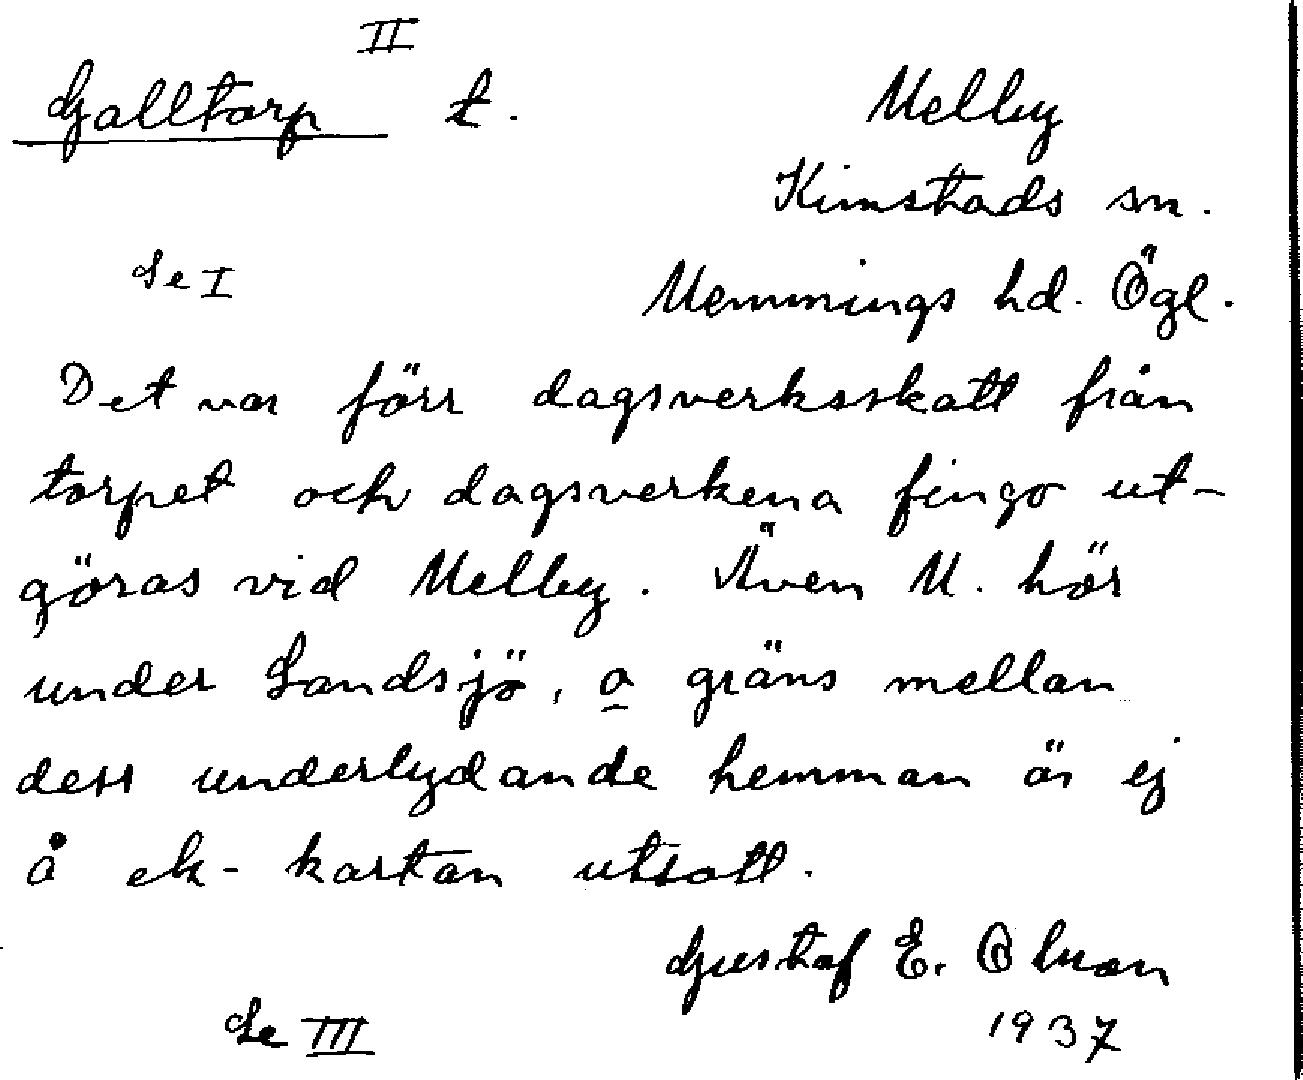 II
Galltorp t. Melby
Kimstads sn.
Se I Memmings hd. Ögl.
Det var förr dagsverksskatt från
torpet och dagsverkena fingo ut-
göras vid Melby. Även M. hör
under Landsjö, o gräns mellan
dess underlydande hemman är ej
å ek-kartan utsatt.
Gustaf E. Olsson
Se III 1937